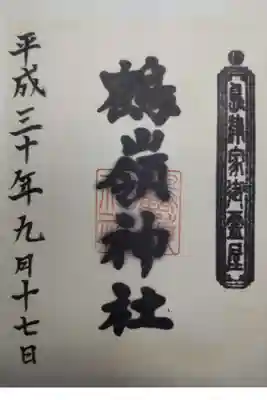 島津家御靈屋
鶴嶺神社
平成三十年九月十七日